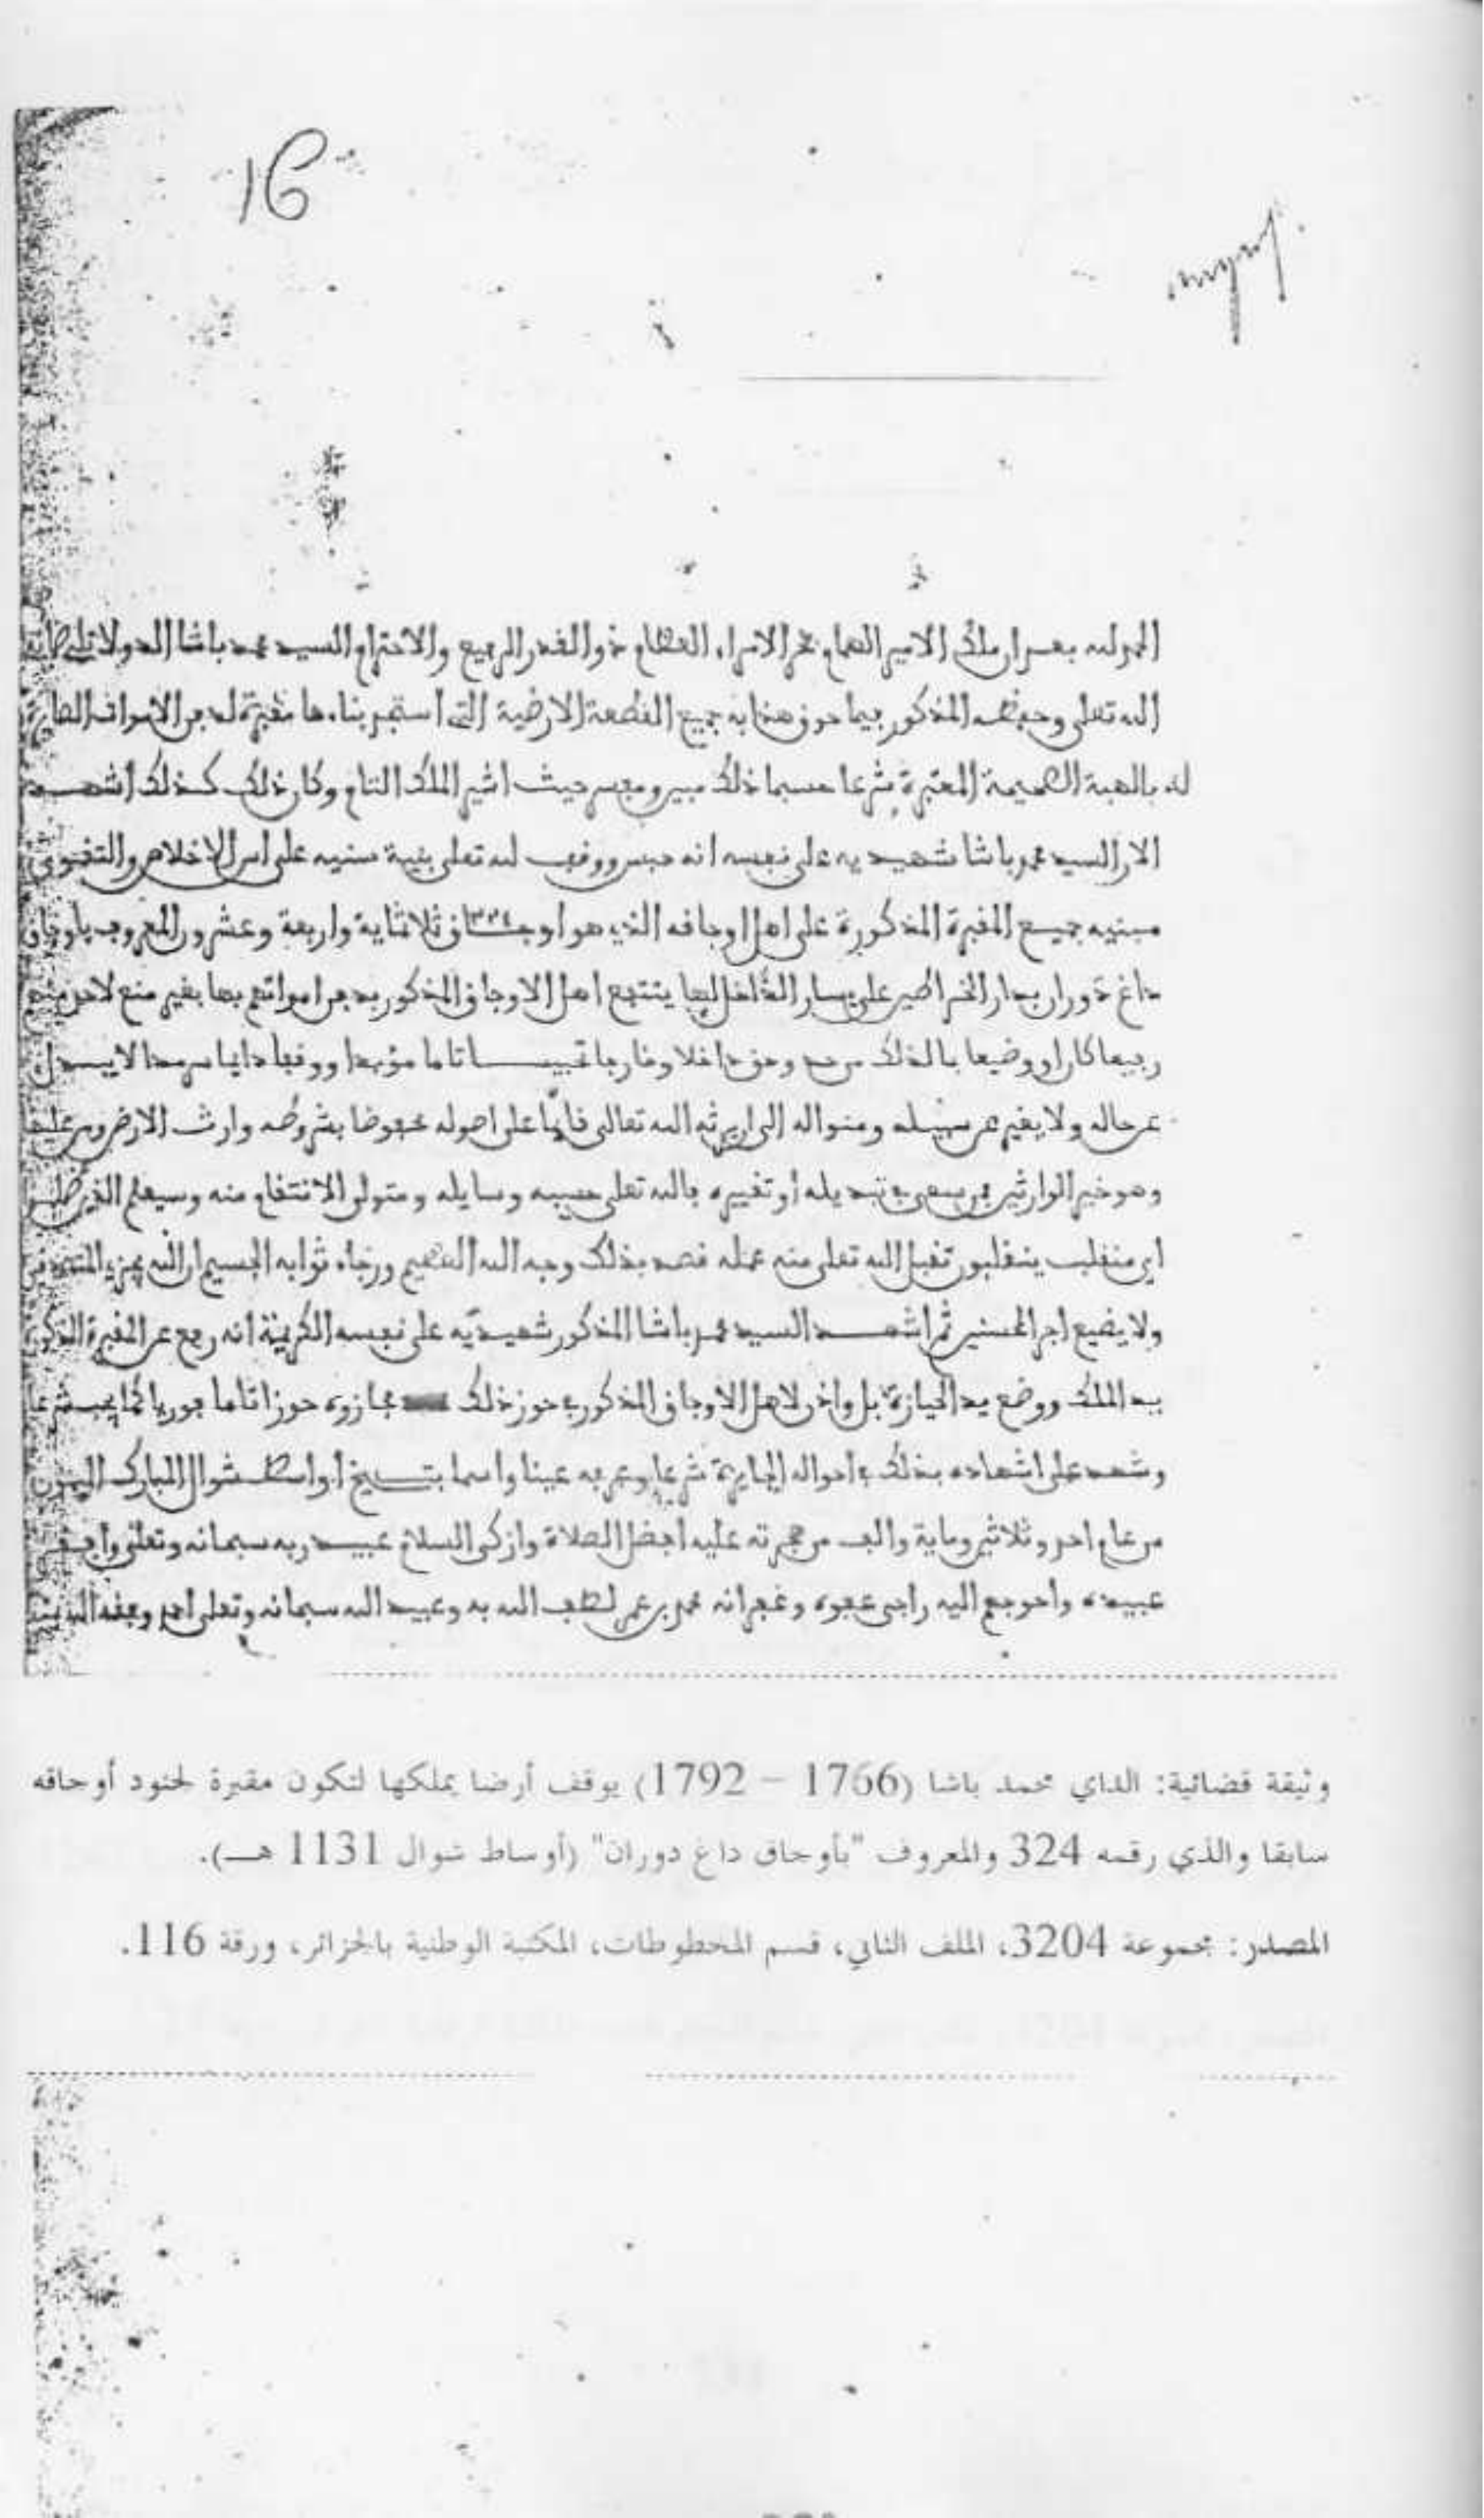 16
الحمد لله بعد ان ملك الامير الهمام فخر الامراء العظام ذو القدر الرفيع والاحترام السيد محمد باشا الدولاتلي
الله تعلى وحفظه المذكور فيما حوز هذا به جميع القطعة الارضية التي استقر بناءها مقبرة لدفن الاموات
له بالهبة الصحيحة المعتبرة شرعا حسبما ذلك مبين ومفسر حيث اشير الملك التام وكان ذلك كذلك اشهد
الان السيد محمد باشا شهيديه على نفسه انه حبس ووقف لله تعلى بنية سنيه على اس الاخلاص والتقوى
مبنيه جميع المقبرة المذكورة على اهل اوجاقه الذي هو اوجاق ٣٢٤ ثلاثماية واربعة وعشرون المعروف باوجاق
داغ دوران بدار الخراطين على يسار الداخل اليها ينتفع اهل الاوجاق المذكور بدفن امواتهم بها بغير منع لاحد منهم
رفيعا كان او وضيعا بالذلك من حد وحق داخلا وخارجا تحبيسا تاما مؤبدا ووقفا دايما سرمدا لا يبدل
عن حاله ولا يغير عن سبيله ومنواله الى ان يرثه الله تعالى قايما على اصوله محفوظا بشروطه وارث الارض ومن عليها
وهو خير الوارثين فمن يسعى في تبديله او تغييره فالله تعلى حسيبه وسايله ومتولى الانتقام منه وسيعلم الذين ظلموا
اي منقلب ينقلبون تقبل الله تعلى منه عمله قصد بذلك وجه الله العظيم ورجاه ثوابه الجسيم ان الله يجزي المتصدقين
ولا يضيع اجر المحسنين ثم اشهد السيد محمد باشا المذكور شهيديه على نفسه الكريمة انه رفع عن المقبرة المذكورة
يد الملك ووضع يد الحيازة بل واذن لاهل الاوجاق المذكور في حوز ذلك فحازوه حوزا تاما فوريا كما يجب شرعا
وشهد على اشهاده بذلك في احواله الجايزة شرعا وعرفه عينا واسما بتاريخ اواسط شوال المبارك الميمون
من عام احد وثلاثين وماية والف من هجرته عليه افضل الصلاة وازكى السلام عبيد ربه سبحانه وتعلى وافقر
عبيده واحوجهم اليه راجى عفوه وغفرانه محمد بن عمر لطف الله به وعبيد الله سبحانه وتعلى احمد وفقه الله
وثيقة قضائية: الداي محمد باشا (1766 – 1792) يوقف أرضا يملكها لتكون مقبرة لجنود أوجاقه
سابقا والذي رقمه 324 والمعروف "بأوجاق داغ دوران" (أوساط شوال 1131 هـ).
المصدر: مجموعة 3204، الملف الثاني، قسم المخطوطات، المكتبة الوطنية بالجزائر، ورقة 116.